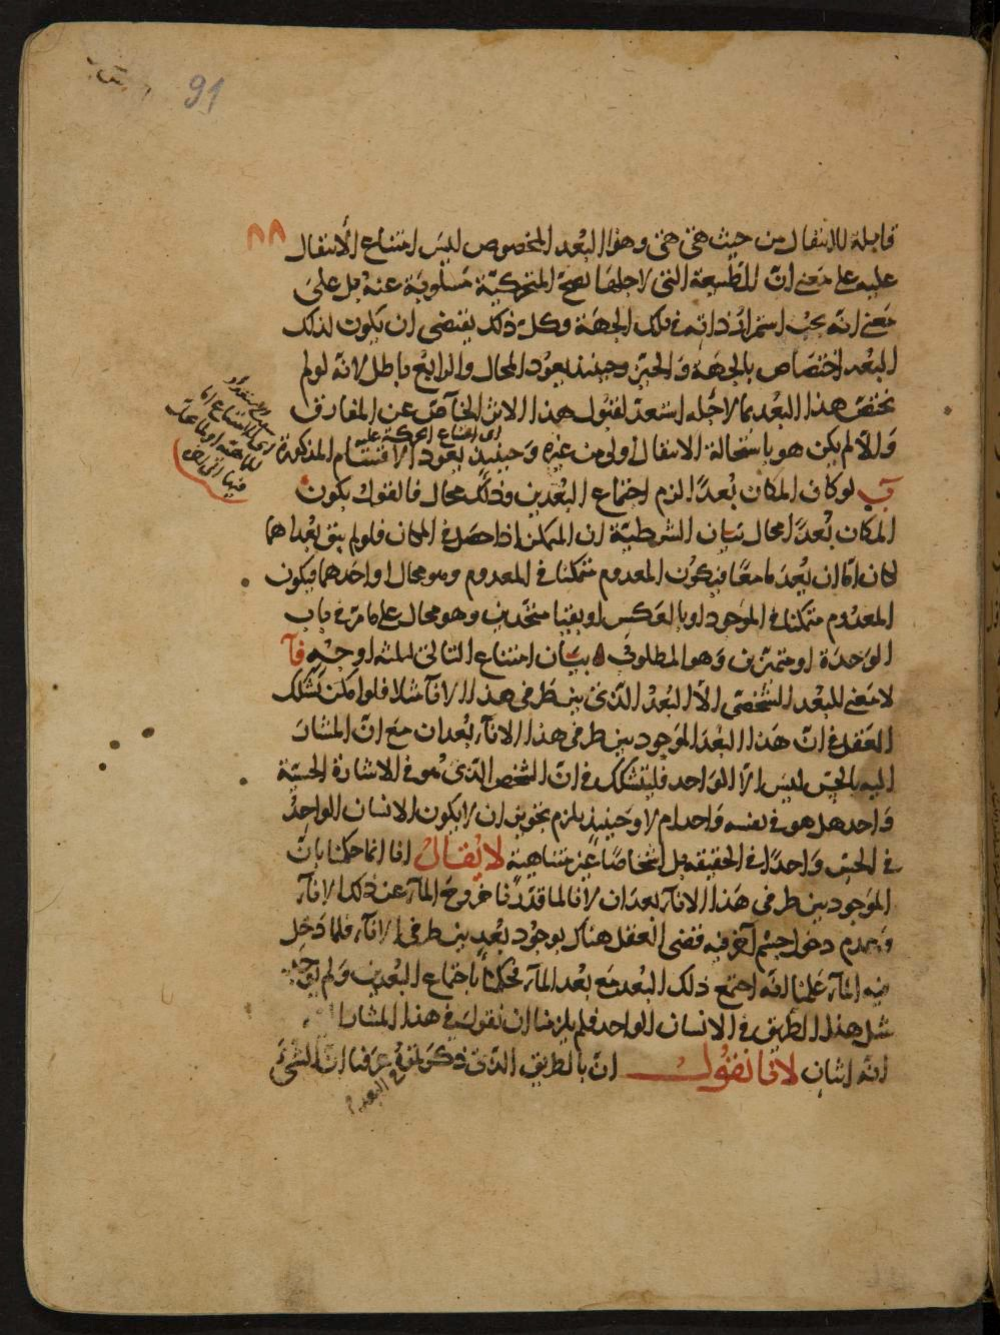 91
٨٨
قابلة للانتقال من حيث هي هي وهذا البعد المخصوص ليس امتناع الانتقال
عليه على معنى ان الطبيعة التي لاجلها لصحة المتحركية مسلوبة عنه بل على
معنى انه يجب استمرار ذاته في تلك الجهة وكل ذلك يقتضي ان يكون لذلك
البعد اختصاص بالجهة والحيز وحينئذ يعود المحال والرابع باطل لانه لو لم
يختص هذا البعد بما لاجله استعد لقبول هذا الاثر الخاص عن المفارق
والا لم يكن هو باستحالة الانتقال اولى من غيره وحينئذ يعود الاقسام المذكورة
اى امتناع الحركة عليه
ب لو كان المكان بعدا لزم اجتماع البعدين وذلك محال فالقول بكون
المكان بعدا محال بيان الشرطية ان المتمكن اذا حصل في المكان فلو لم يبق بعداهما
لكان اما ان يعدما معا فيكون المعدوم متمكنا في المعدوم وهو محال او احدهما فيكون
المعدوم متمكنا في الموجود او بالعكس او بقيا متحدين وهو محال على ما مر في باب
الوحدة او متميزين وهو المطلوب بيان امتناع التالي لثلثة اوجه فا
لا معنى للبعد الشخصي الا البعد الذي بين طرفي هذا الاناء مثلا فلو امكن تشكك
العقل في ان هذا البعد الموجود بين طرفي هذا الاناء بعدان مع ان المشار
اليه بالحس ليس الا الواحد فليتشكك في ان الشخص الذي هو في الاشارة الحسية
واحد هل هو في نفسه واحد ام لا وحينئذ يلزم تجويز ان لا يكون الانسان الواحد
في الحس واحدا في الحقيقة بل اشخاصا غير متناهية لا يقال انا انما حكمنا بان
الموجود بين طرفي هذا الاناء بعدان لانا لما قدرنا خروج الماء عن ذلك الاناء
وعدم دخول جسم آخر فيه قضى العقل هناك بوجود بعد بين طرفي الاناء فلما دخل
فيه الماء علمنا انه اجتمع ذلك البعد مع بعد الماء فحكمنا باجتماع البعدين ولم
مثل هذا الطريق في الانسان الواحد فلم يلزمنا ان نقول في هذا المشار
انه اثنان لانا نقول ان بالطريق الذي ذكرتموه عرفنا ان الشيء
في البعد